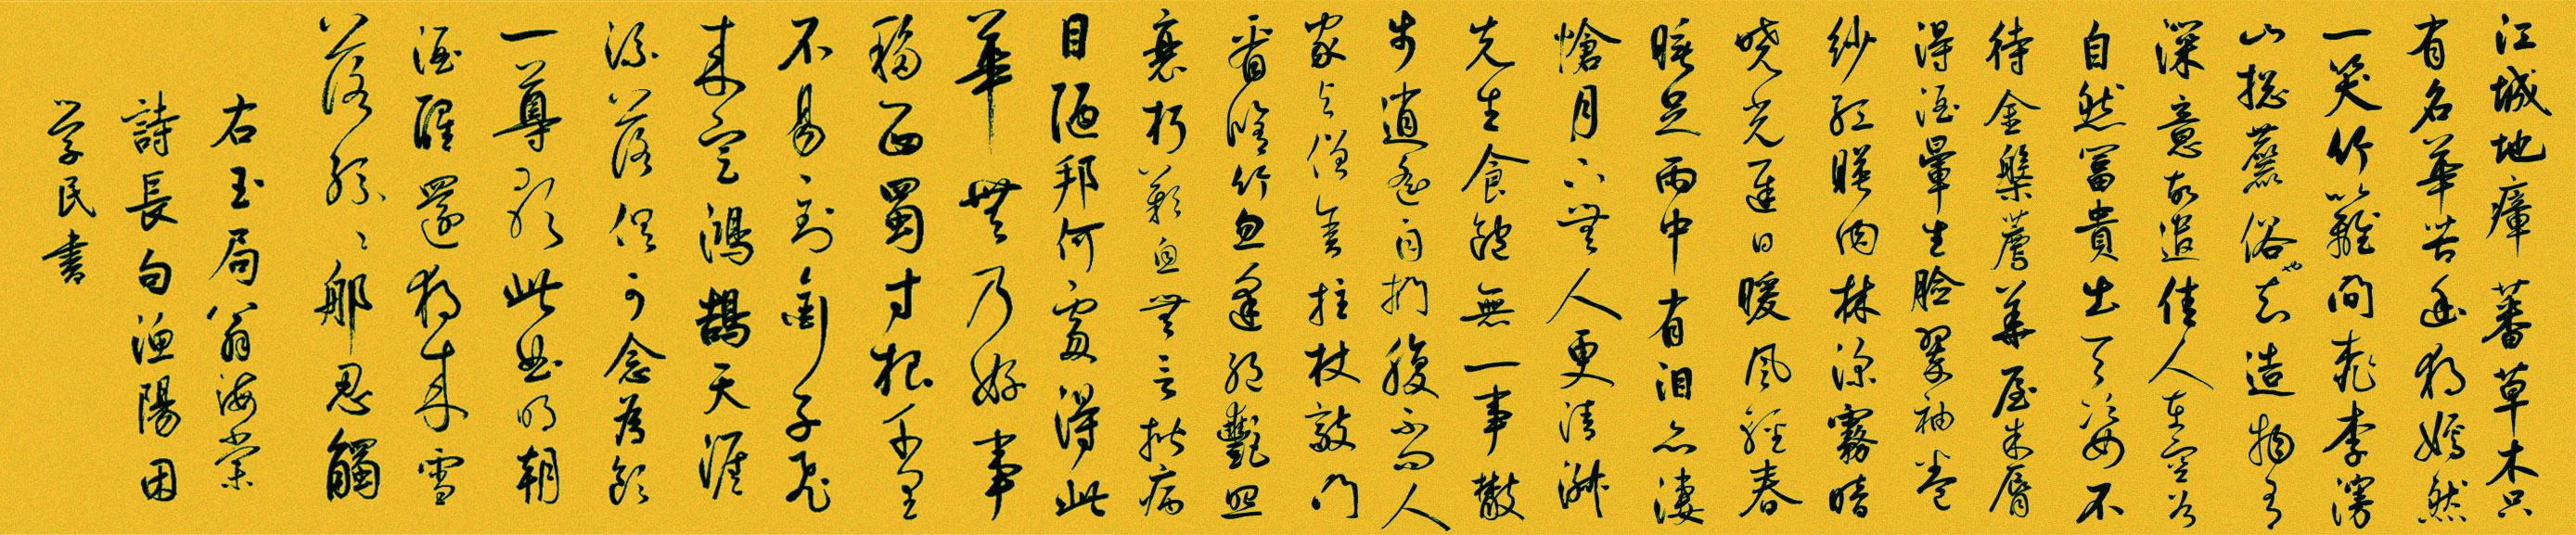 江城地瘴蕃草木只
有名華苦幽獨嫣然
一笑竹籬間桃李漫
山揔麤俗也知造物有
深意故遣佳人在空谷
自然富貴出天姿不
待金槃薦華屋朱脣
得酒暈生臉翠袖卷
紗紅暎肉林深霧暗
曉光遲日暖風輕春
睡足雨中有泪亦凄
愴月下無人更清淑
先生食飽無一事散
步逍遙自捫腹不問人
家與僧舍拄杖敲門
看脩竹忽逢絕艷照
衰朽歎息無言揩病
目陋邦何處得此
華無乃好事
移西蜀寸根千里
不易到銜子飛
来定鴻鵠天涯
流落俱可念為飲
一尊歌此曲明朝
酒醒還獨来雪
落紛々那忍觸
右玉局翁海棠
詩長句漁陽困
學民書